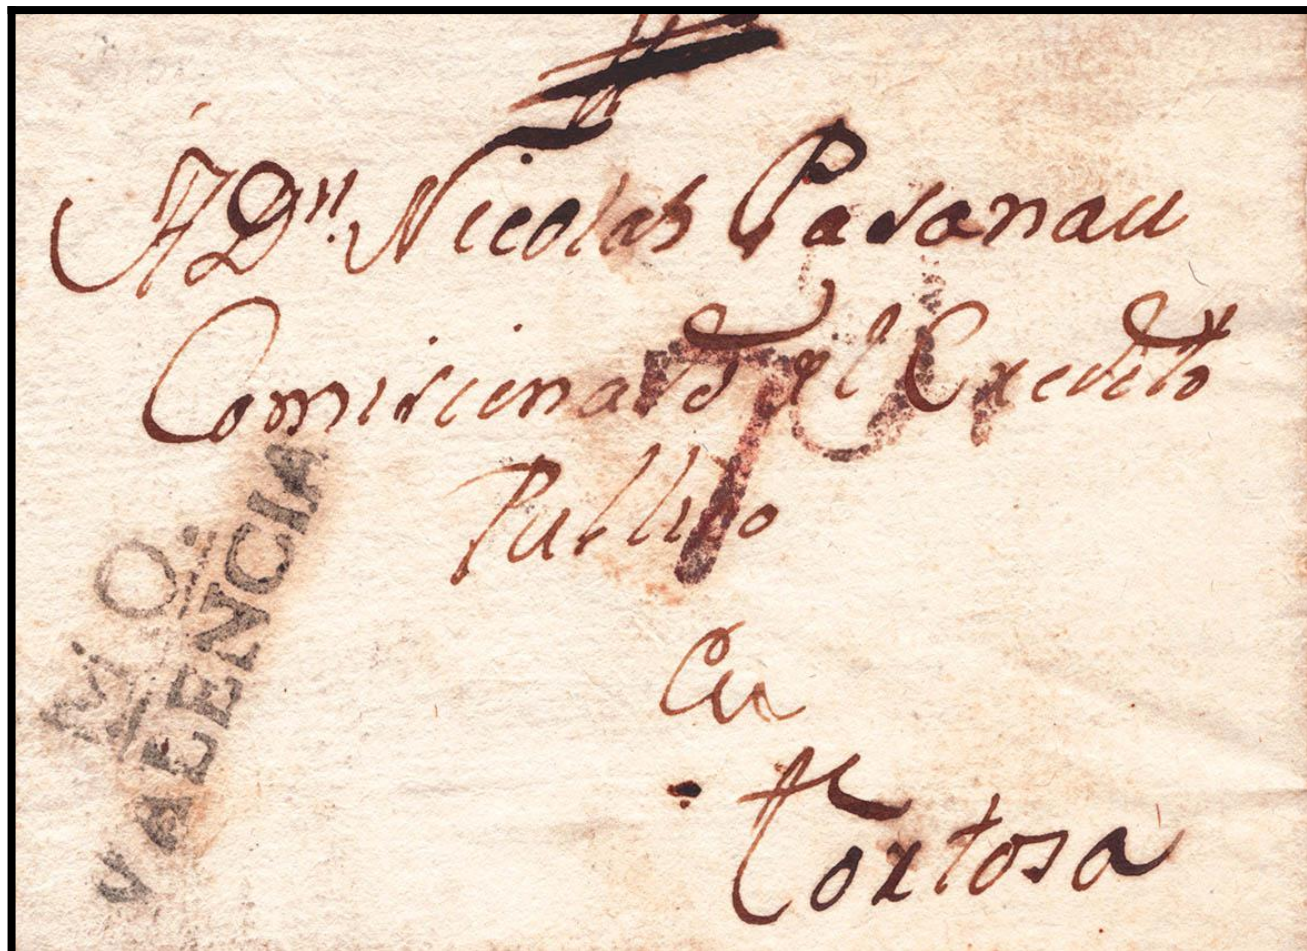 A Dn. Nicolas Pasanau
Comisionado del Credito
Publico
7
En
Tortosa
M.O.
VALENCIA